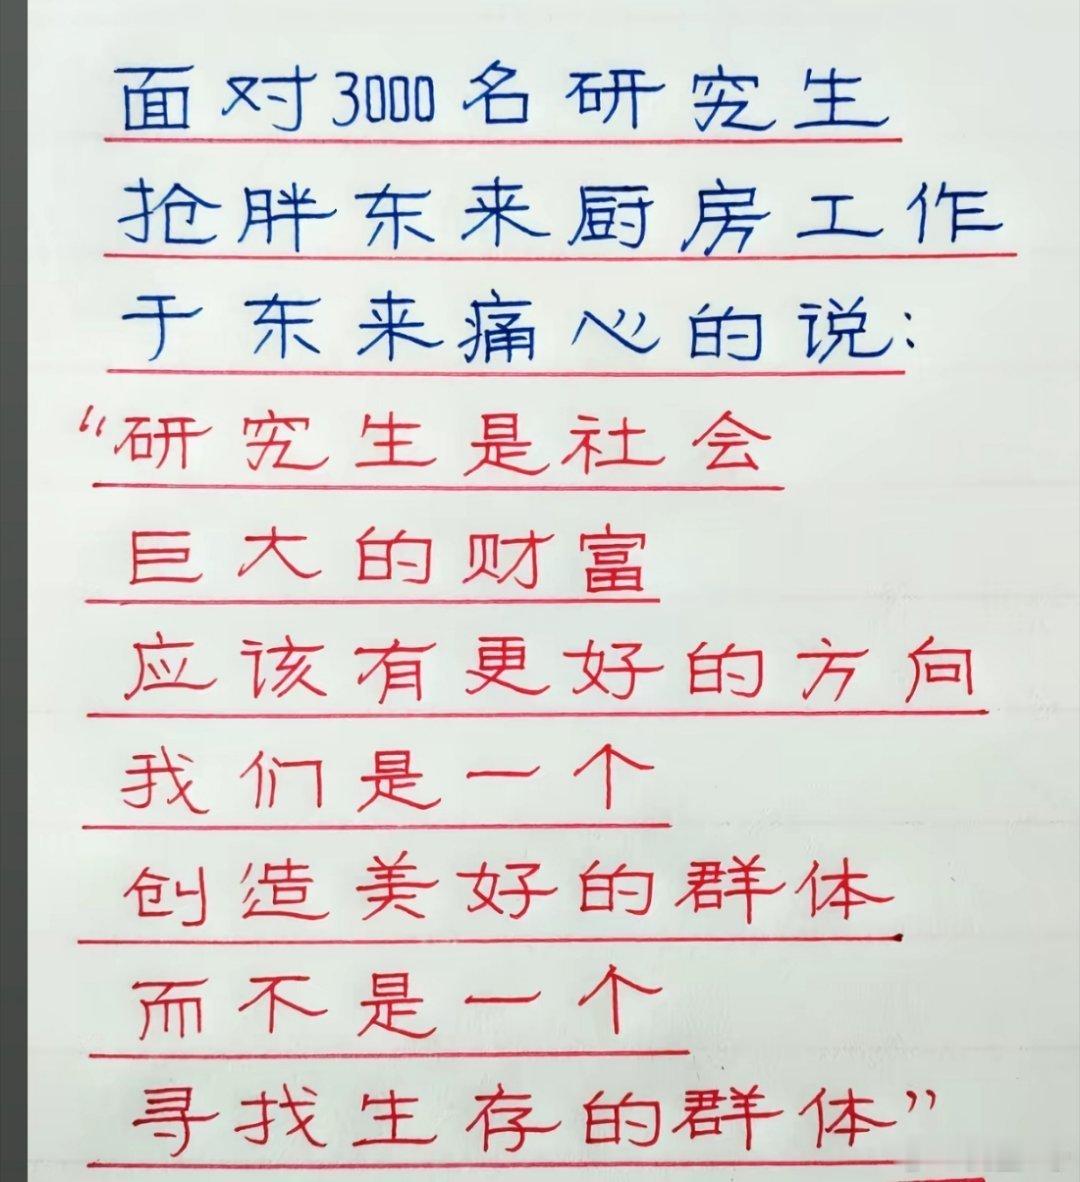 面对3000名研究生
抢胖东来厨房工作
于东来痛心的说：
“研究生是社会
巨大的财富
应该有更好的方向
我们是一个
创造美好的群体
而不是一个
寻找生存的群体”